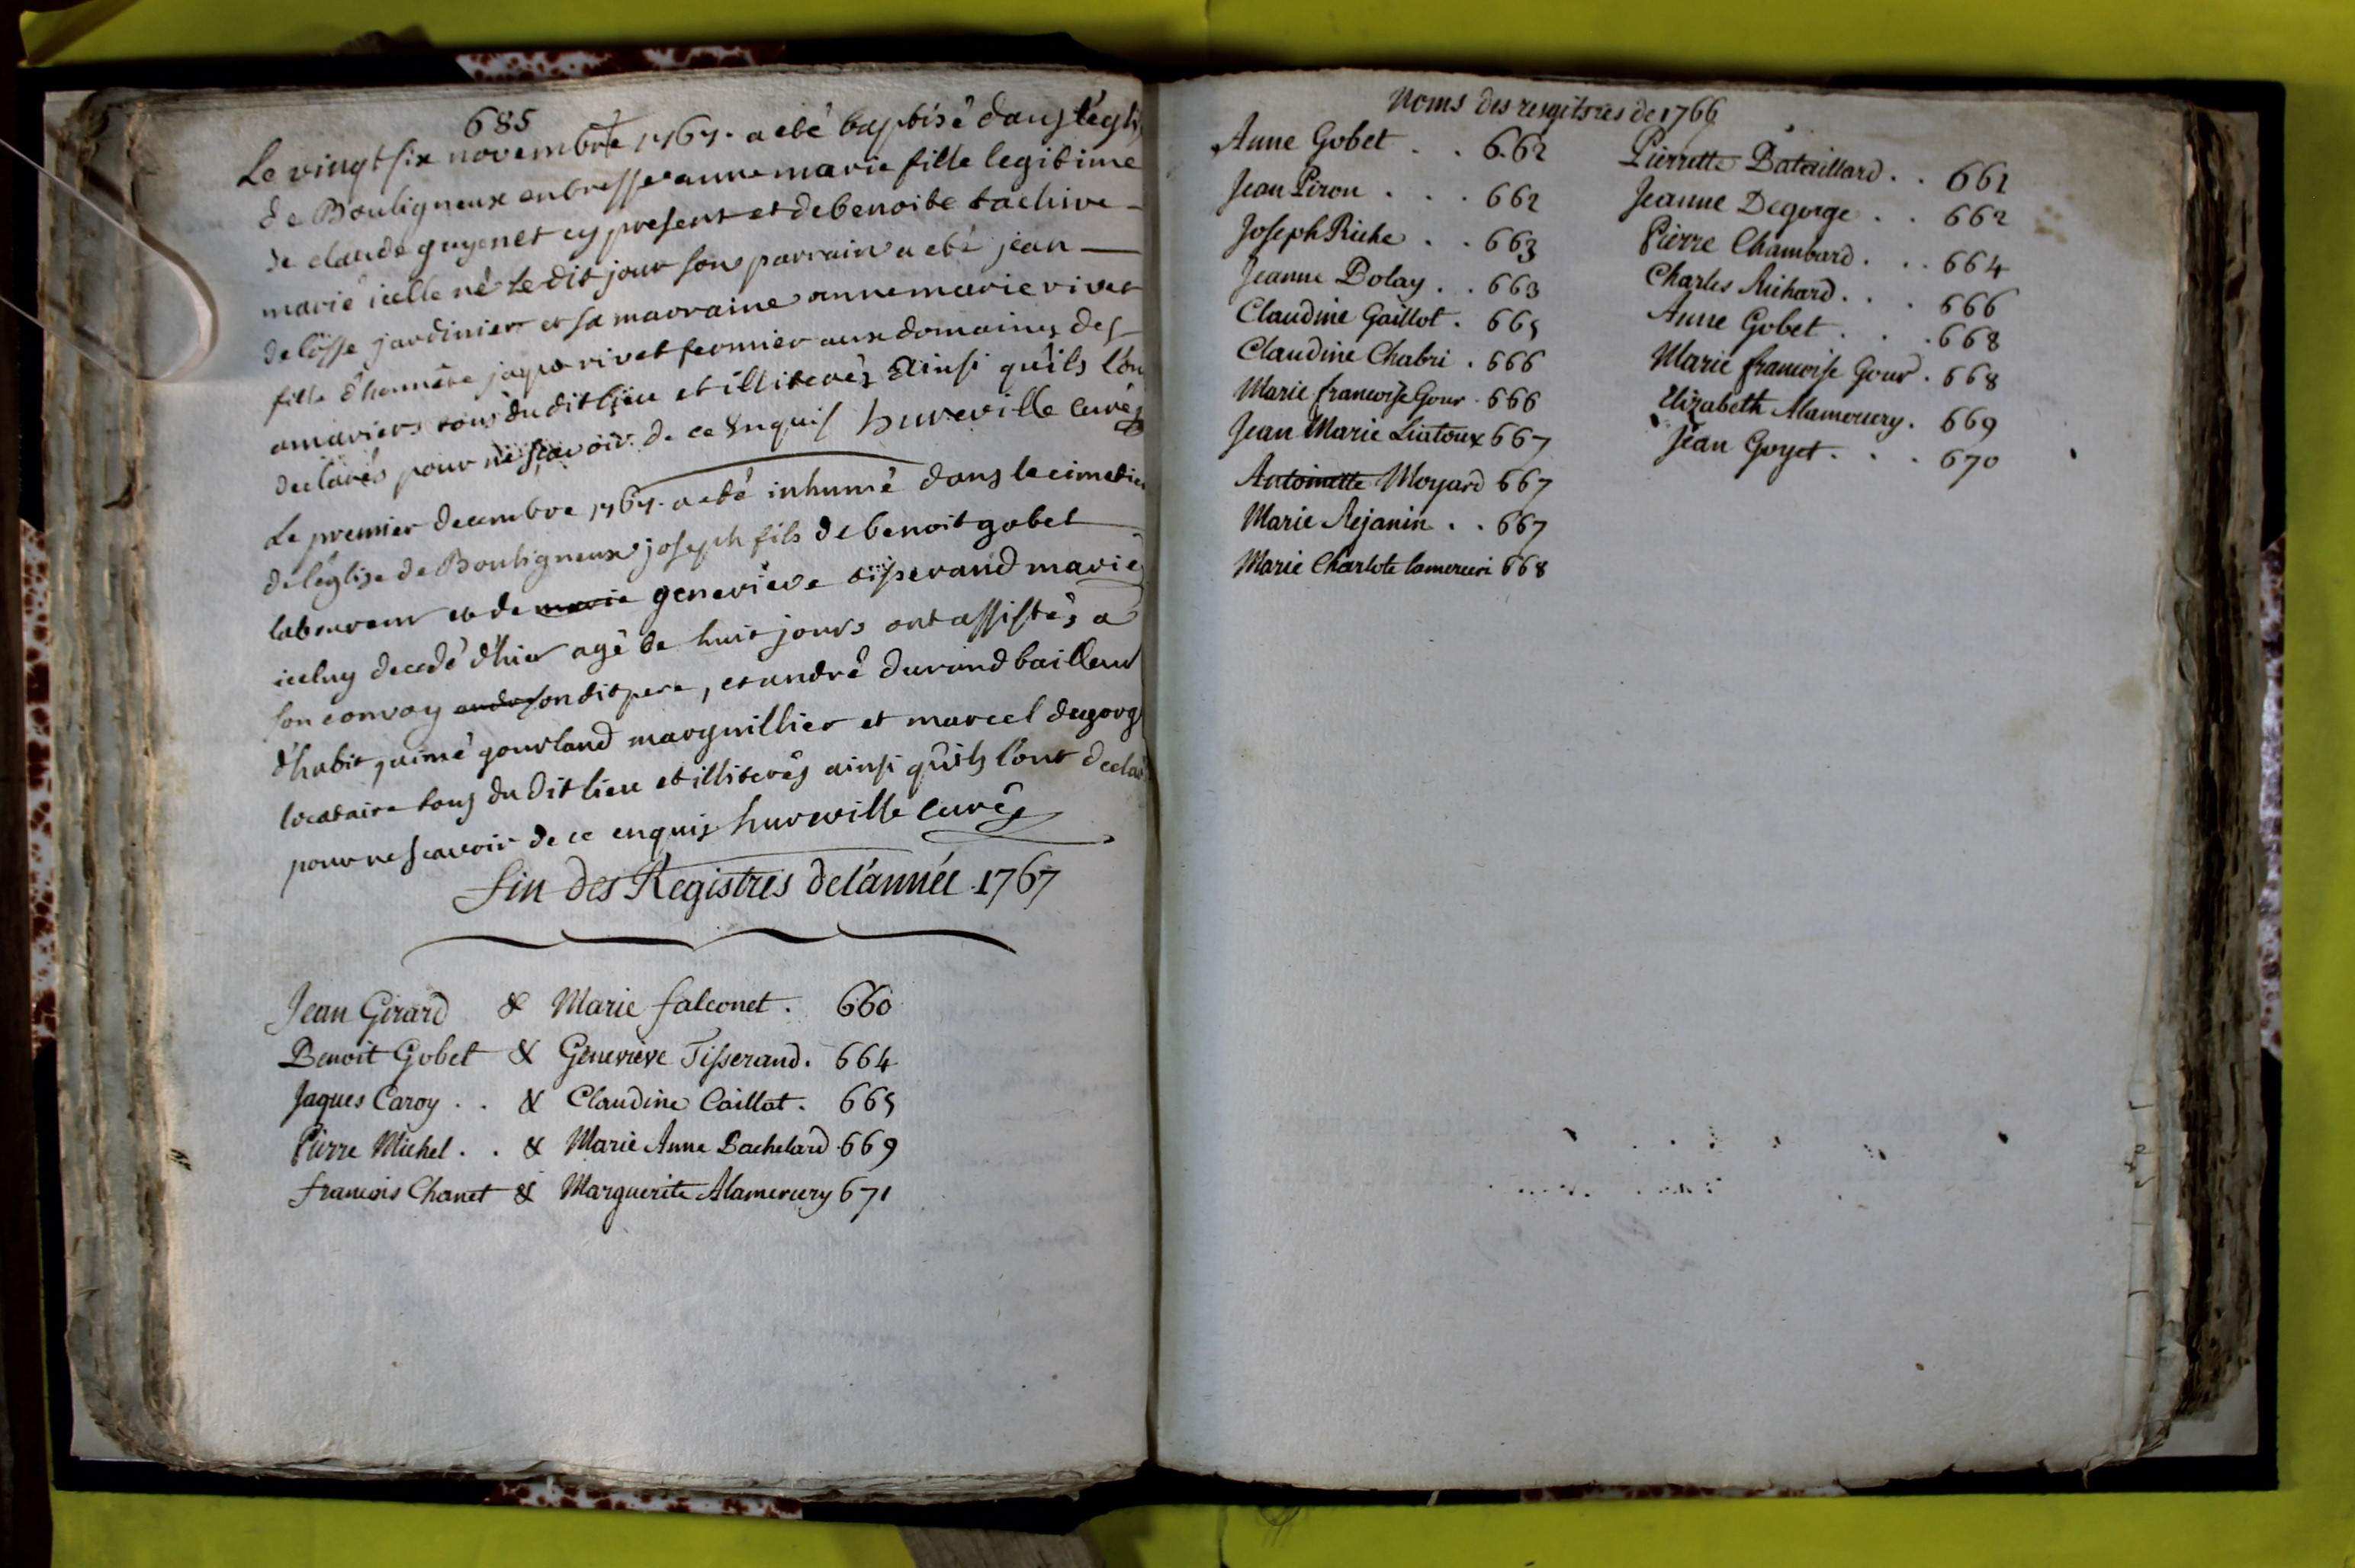 685
Le vingt six novembre 1767. a eté baptisé dans l'égli
de Bouligneux en bresse anne marie fille legitime
de claude guyenet cy present et de benoite tachive
marié icelle né le dit jour son parrain a eté jean
delosse jardinier et sa marraine anne marie rivet
fille d'honnête jaque rivet fermier aux domaines des
amariers tous du dit lieu et illiterés ainsi qu'ils l'on
declarés pour ne sçavoir de ce enquis hureville curé
Le premier decembre 1767. a eté inhumé dans le cimetie
de l'église de Bouligneux joseph fils de benoit gobet
laboureur et de marie genevieve tisserand marié
iceluy decedé d'hier agé de huit jours ont assistés a
son convoy andre son dit pere, et andré durand tailleur
d'habit, aimé gourland marguillier et marcel degorg
locataire tous du dit lieu et illiterés ainsi qu'ils l'ont decla
pour ne scavoir de ce enquis hureville curé
fin des Registres de l'année 1767
Jean Girard & Marie falconet . 660
Benoit Gobet & Genevieve Tisserand . 664
Jaques Caroy . . & Claudine Caillat . 665
Pierre Michel . . & Marie Anne Bachelard . 669
francois Chanet & Marguerite Alamercery 671
Noms des resgitsres de 1766
Anne Gobet . . 662
Jean Piron . . . 662
Joseph Riche . . 663
Jeanne Bolay . . 663
Claudine Gaillot . 665
Claudine Chabri . 666
Marie francoise Gour . 666
Jean Marie Liatoux 667
Antoinette Moyard 667
Marie Rejanin . . 667
Marie Charlote lamerceri 668
Pierrette Bataillard . . 661
Jeanne Degorge . . 662
Pierre Chambard . . . 664
Charles Richard . . . 666
Anne Gobet . . . 668
Marie francoise Gour . 668
Elizabeth Alamercery . 669
Jean Goyet . . . 670